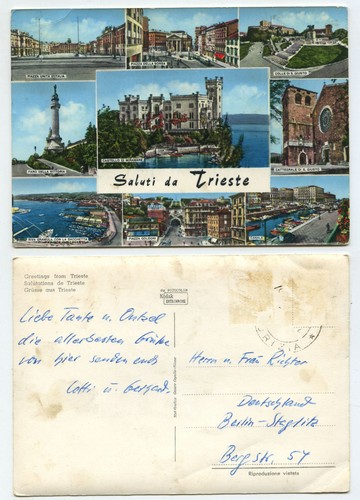 PIAZZA UNITÀ D'ITALIA
PIAZZA DELLA BORSA
COLLE DI S. GIUSTO
FARO DELLA VITTORIA
CASTELLO DI MIRAMARE
CATTEDRALE DI S. GIUSTO
Saluti da Trieste
RIVA GRUMULA CON LA
PIAZZA
CANALE
Greetings from Trieste
Salutations de Trieste
Grüsse aus Trieste
Kodak
EKTACHROME
Liebe Tante u. Onkel
die allerbesten Grüße
von hier senden euch
Lotti u. Gerhard.
Herrn u. Frau Richter
Deutschland
Berlin-Steglitz
Bergstr. 54
Riproduzione vietata